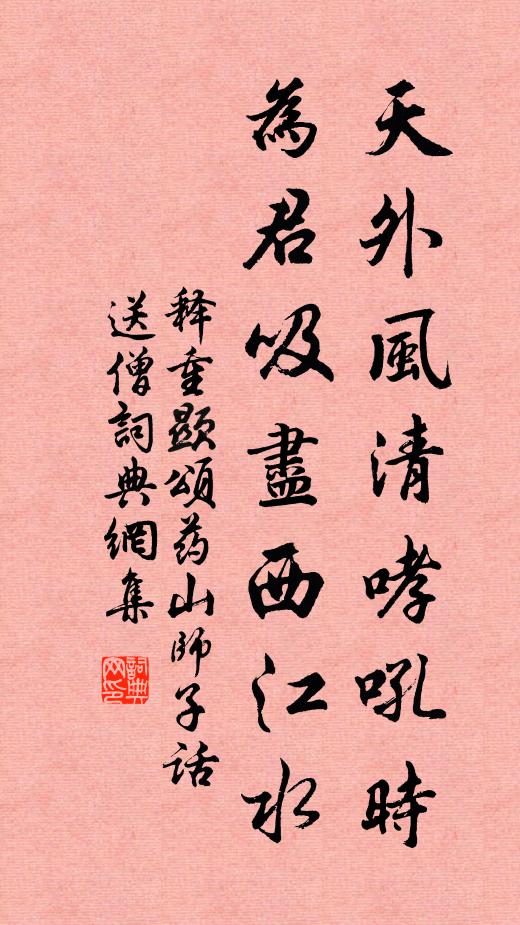 天外風清哮吼時
為君吸盡西江水
释重顯頌药山師子话
送僧詞典網集
詞典
网印